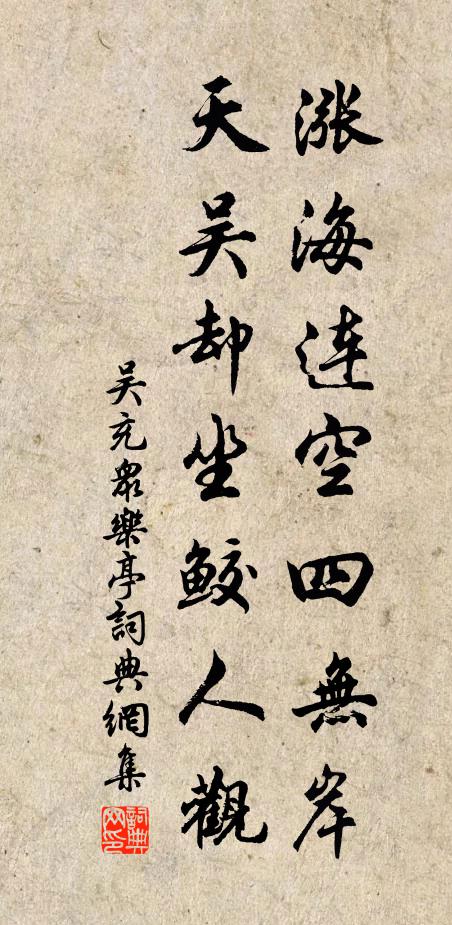 漲海連空四無岸
天吴却坐鮫人觀
吴充衆樂亭詞典網集
詞典网印